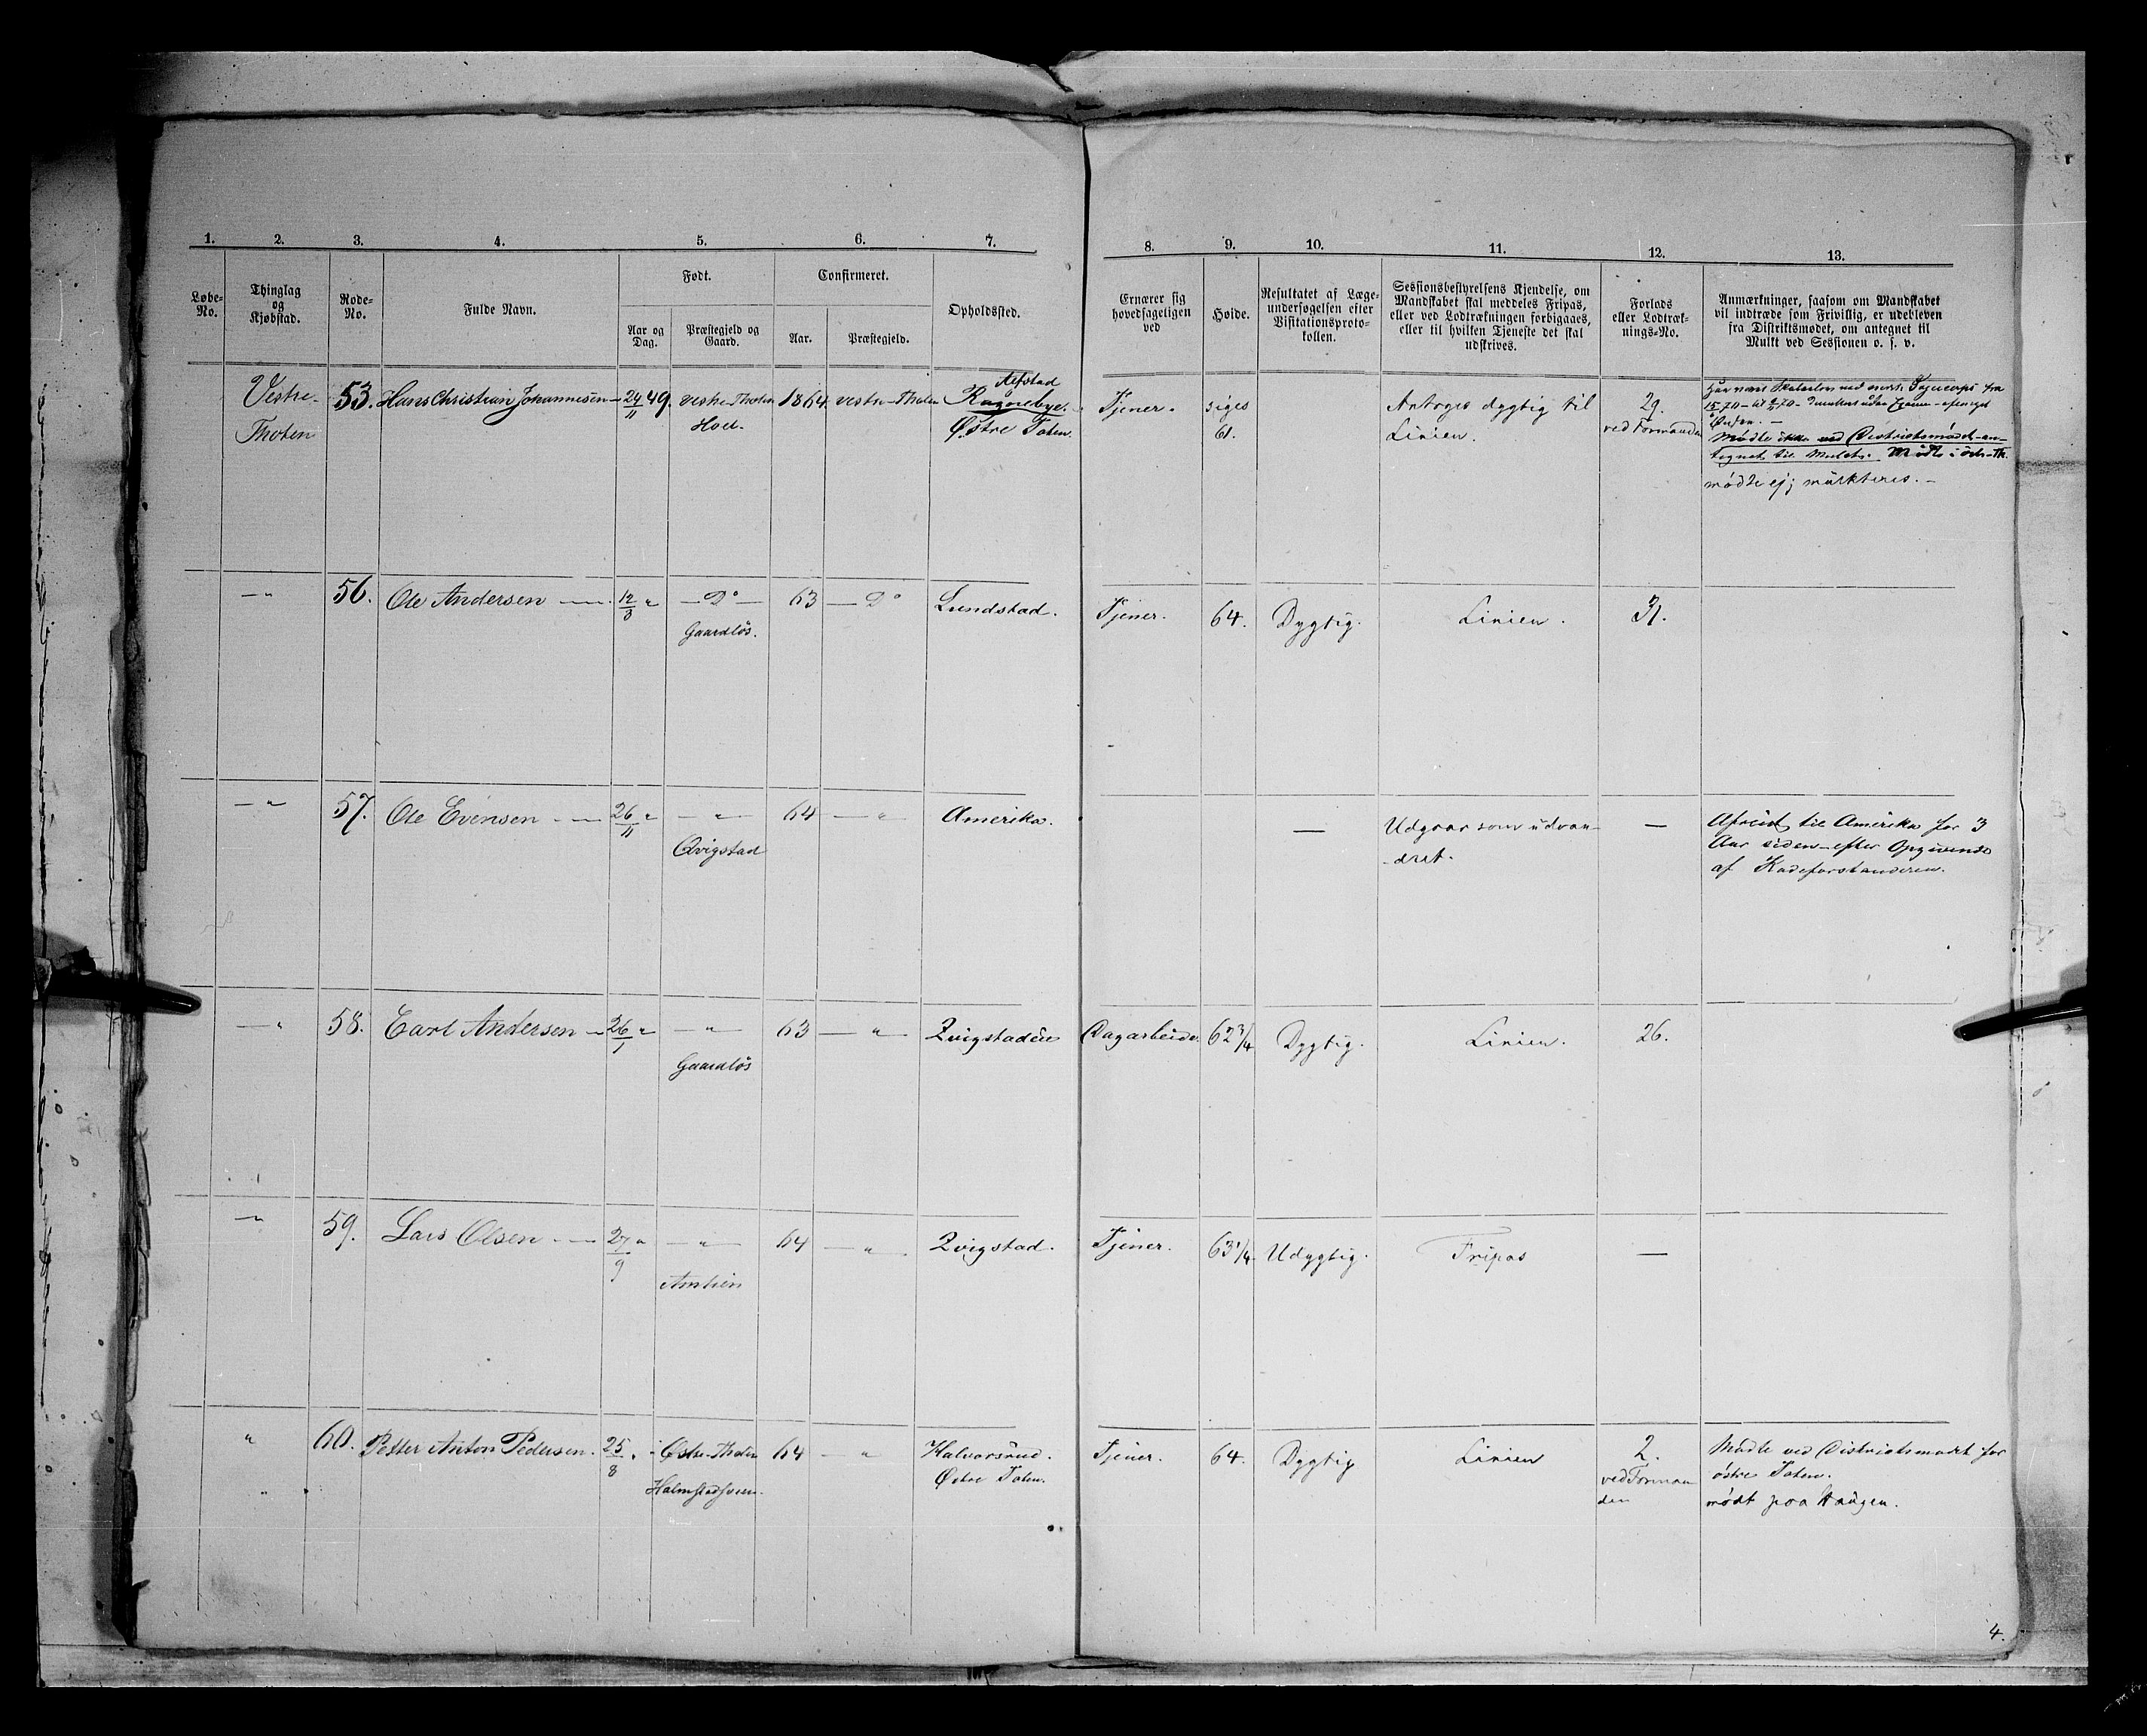 1. 2. 3. 4. 5. 6. 7. 8. 9. 10. 11. 12. 13.
Løbe-
No.
Thinglag
og
Kjøbstad.
Rode-
No.
Fulde Navn.
Født.
Aar og
Dag.
Præstegjeld og
Gaard.
Confirmeret.
Aar.
Præstegjeld.
Opholdssted.
Ernærer sig
hovedsageligen
ved
Høide.
Resultatet af Læge-
undersøgelsen efter
Visitationsproto-
kollen.
Sessionsbestyrelsens Kjendelse, om
Mandskabet skal meddeles Fripas,
eller ved Lodtrækningen forbigaaes,
eller til hvilken Tjeneste det skal
udskrives.
Forlads
eller Lodtræk-
nings-No.
Anmærkninger, saasom om Mandskabet
vil indtræde som Frivillig, er udebleven
fra Distriktsmødet, om antegnet til
Mulkt ved Sessionen o. s. v.
Vestre-
Thoten
53. Hans Christian Johannesen 24/11 49. Vestre-Thoten
Hoel.
1864 Vestre-Thoten
Alfstad
Østre Toten.
Tjener. siges
61.
Antages dygtig til
Linien.
29.
ved Formanden
Mødte ikke ved Districtsmødet-an-
tegnet til Mulct. Mødte i
mødte ej; mulkteres.
—"— 56. Ole Andersen 12/8 " — Do —
Gaardløs.
63 — Do Lundstad. Tjener. 64. Dygtig. Linien. 31.
—"— 57. Ole Evensen 26/11 " —"—
Qvigstad
64 —"— Amerika. — Udgaar som udvan-
dret.
—
Afreist til Amerika for 3
Aar siden - efter Opgivende
af Rodeforstanderen.
—"— 58. Carl Andersen 26/1 " —"—
Gaardløs
63 —"— Qvigstadeie Dagarbeider. 62 3/4 Dygtig. Linien. 26.
—"— 59. Lars Olsen 27/9 " —"—
64 —"— Qvigstad. Tjener. 63 1/4 Udygtig. Fripas —
" 60. Petter Anton Pedersen. 25/8 " Østre-Thoten
64 —"— Halvorsrud.
Østre Toten.
Tjener. 64. Dygtig Linien 2.
ved Forman
den
Mødte ved Districtsmødet for
østre Toten.
mødt paa Haugen.
4.